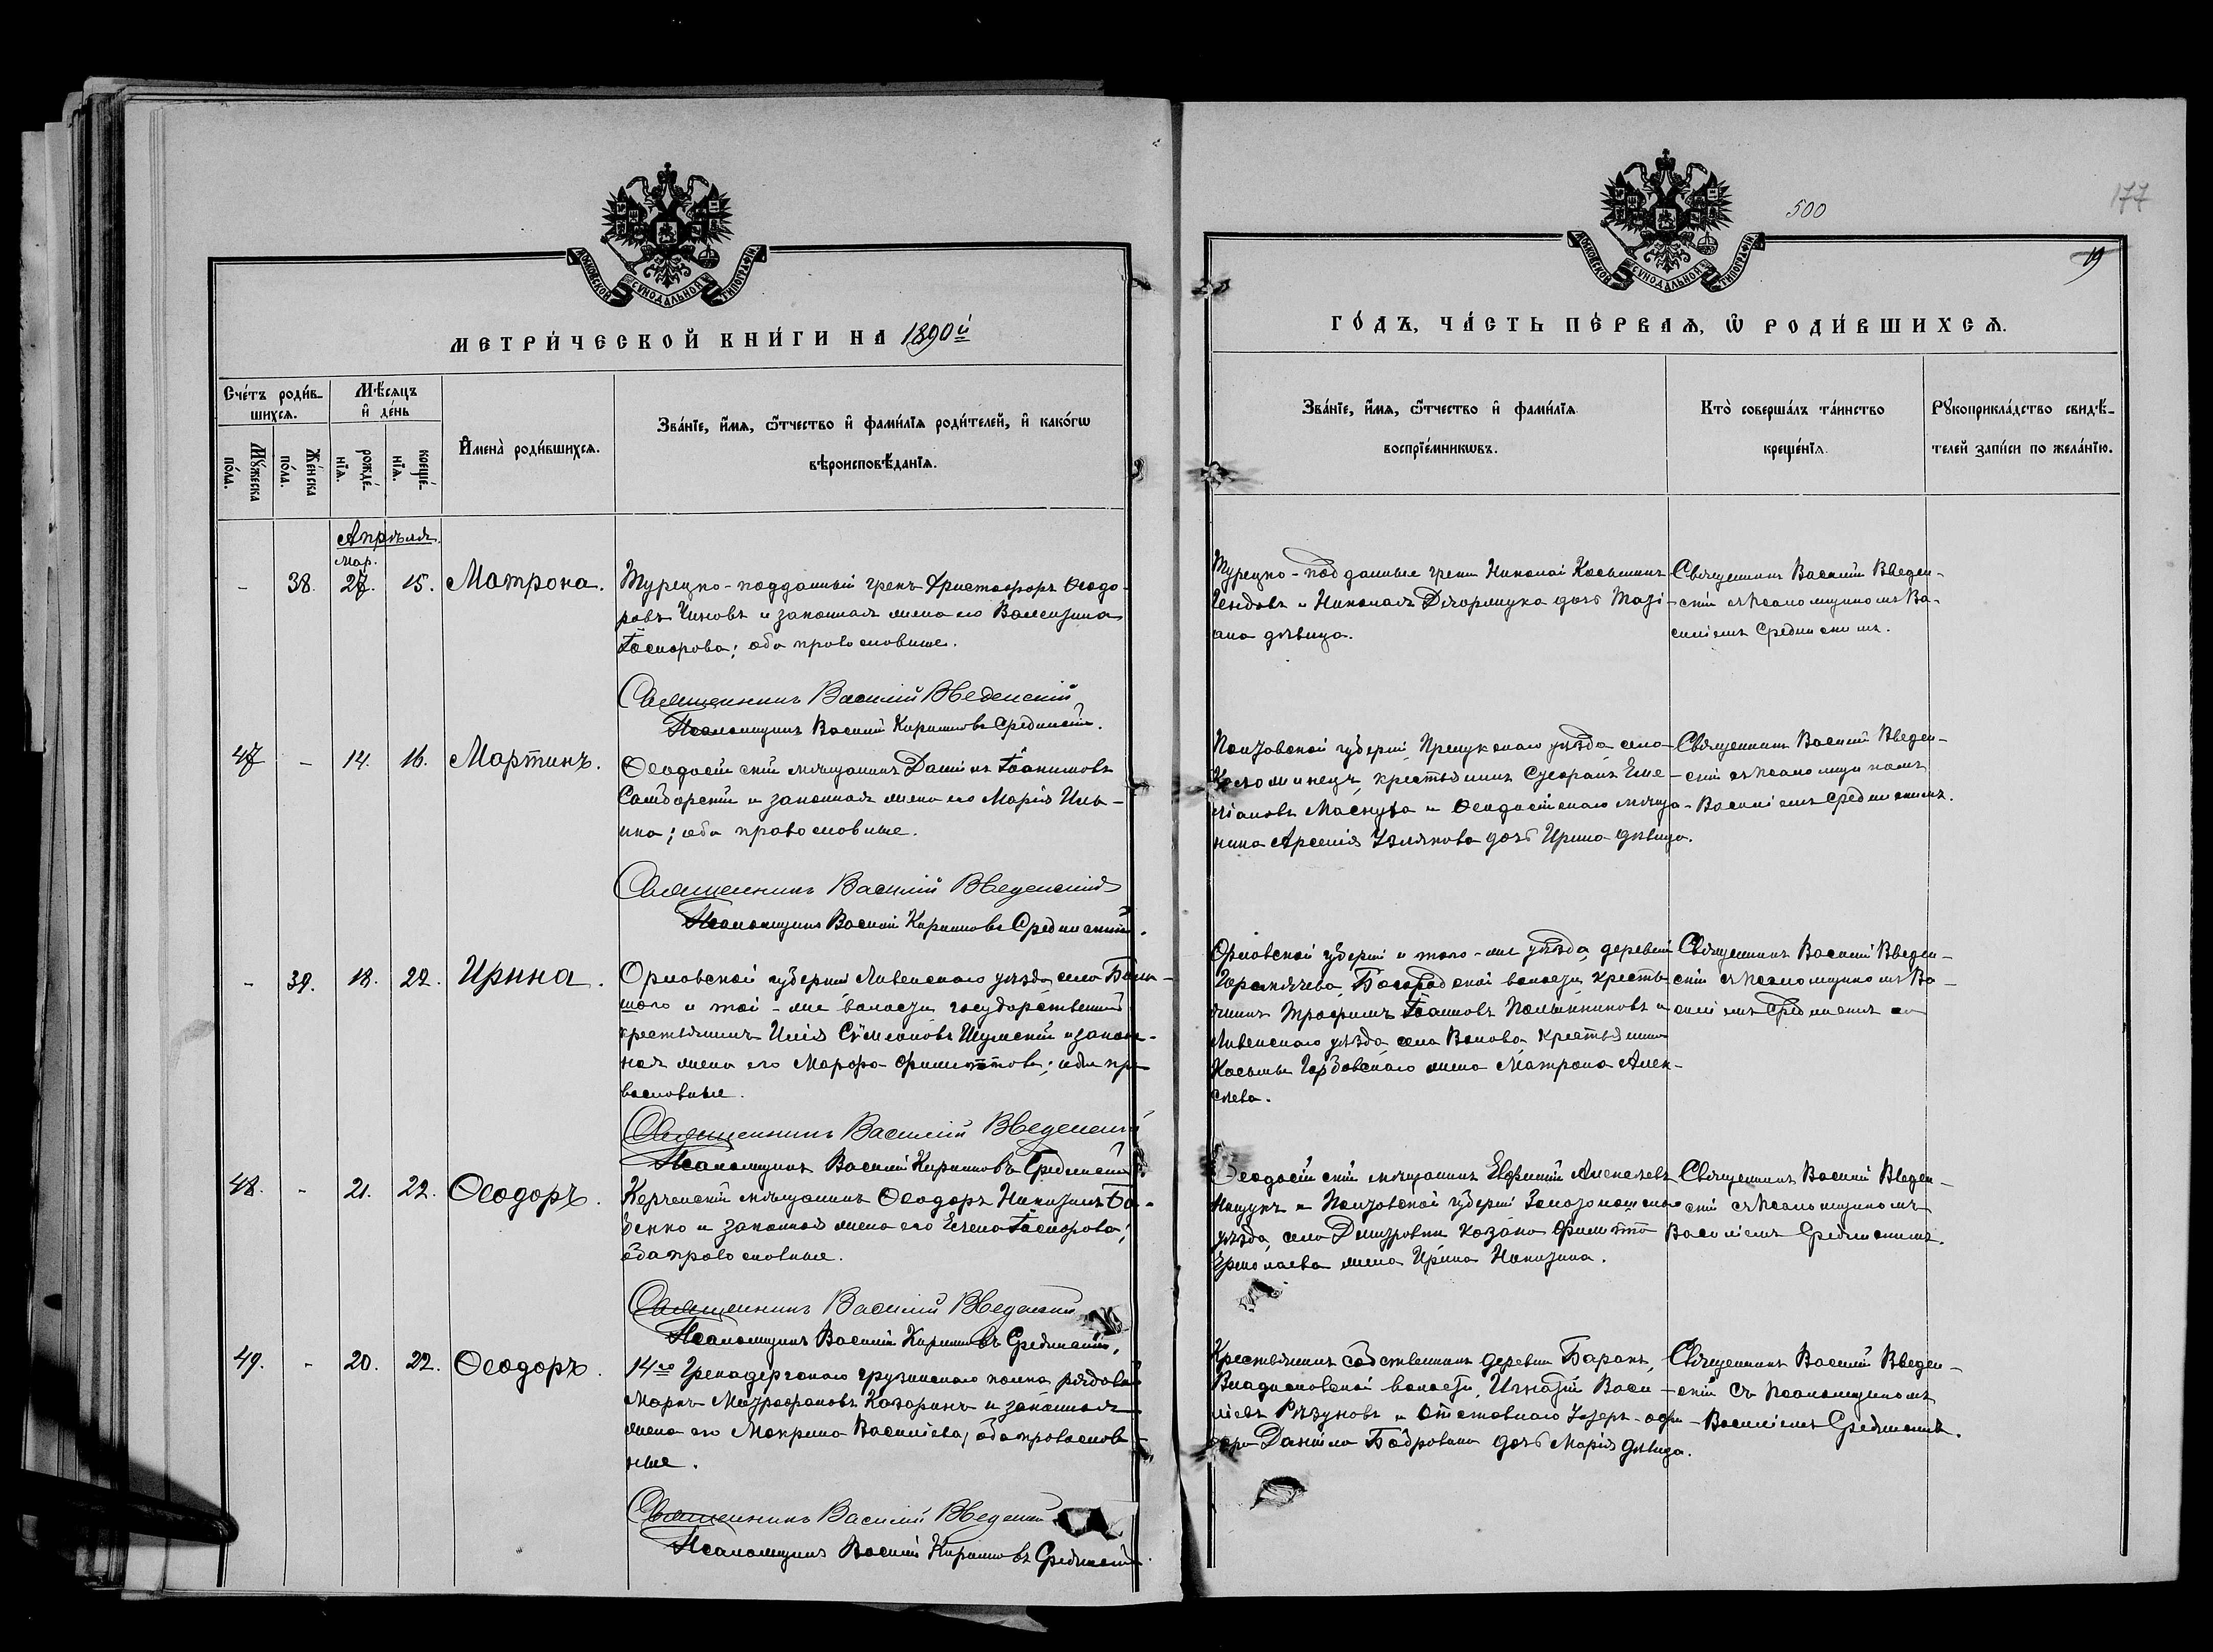 МОСКОВСКОЙ СѴНОДАЛЬНОЙ ТИПОГРАФІИ.
МЕТРИ́ЧЕСКОЙ КНИ́ГИ НА 1890й
Сче́тъ роди́в-
шихся.
Мѣ́сяцъ
и҆ де́нь
Мꙋ́жеска
по́ла.
Же́нска
по́ла.
рожде́-
нїѧ.
креще́-
нїѧ.
И҆мена̀ роди́вшихсѧ.
Зва́нїе, и҆́мѧ, ѻ҆́тчество и҆ фами́лїѧ роди́телей, и҆ како́гѡ
вѣроисповѣ́данїѧ.
Апрѣля.
Мар.
- 38. 27. 15. Матрона.
Турецко-подданный грекъ Христофоръ Ѳеодо-
ровъ и законная жена его Валентина
Гаспорова; оба православные.
Священникъ Василій Введенскій
Псаломщикъ Василій Кирилловъ Срединскій.
47 - 14. 16. Мартинъ.
Ѳеодосійскій мѣщанинъ Даніилъ Іоакимовъ
и законная жена его Марія Иль-
ина; оба православные.
Священникъ Василій Введенскій
Псаломщикъ Василій Кирилловъ Срединскій.
- 39. 18. 22. Ирина.
Орловской губерніи Ливенскаго уѣзда села
и той-же волости государственный
крестьянинъ Илія Сѵмеоновъ Шумскій и закон-
ная жена его Марфа Филиппова; оба пра
вославные.
Священникъ Василій Введенскій
Псаломщикъ Василій Кирилловъ Срединскій
48. - 21. 22. Ѳеодоръ.
Керченскій мѣщанинъ Ѳеодоръ Никитинъ Ба-
бенко и законная жена его Елена Гаспорова;
оба православные.
Священникъ Василій Введенскій
Псаломщикъ Василій Кирилловъ Срединскій.
49. - 20. 22. Ѳеодоръ.
14го Гренадерскаго грузинскаго полка рядовой
Маркъ Митрофановъ Катаринъ и законная
жена его Макрина Василіева; оба православ-
ные.
Священникъ Василій Введенскій
Псаломщикъ Василій Кирилловъ Срединскій.
500
177
19
МОСКОВСКОЙ СѴНОДАЛЬНОЙ ТИПОГРАФІИ.
ГО́ДЪ, ЧА́СТЬ ПЕ́РВАѦ, Ѽ РОДИ́ВШИХСѦ.
Зва́нїе, и҆́мѧ, ѻ҆́тчество и҆ фами́лїѧ
воспрїе́мникѡвъ.
Кто̀ соверша́лъ та́инство
креще́нїѧ.
Рꙋкоприкла́дство свидѣ́-
телей за́писи по жела́нїю.
Турецко-подданные греки Николай Косьминъ
и Николая дочь
дѣвица.
Священникъ Василій Введен-
скій съ псаломщикомъ Ва-
силіемъ Срединскимъ.
Полтавской губерніи Прилукскаго уѣзда села
крестьянинъ Еме-
ліановъ и Ѳеодосійскаго мѣща-
нина Арсенія дочь Ирина дѣвица.
Священникъ Василій Введен-
скій съ псаломщикомъ
Василіемъ Срединскимъ.
Орловской губерніи и того-же уѣзда, деревни
волости, кресть-
янинъ Трофимъ Іоанновъ и
Ливенскаго уѣзда села крестьянина
Косьмы жена Матрона Алек-
сѣева.
Священникъ Василій Введен-
скій съ псаломщикомъ Ва-
силіемъ Срединскимъ
Ѳеодосійскій мѣщанинъ Евфимій Алексѣевъ
и Полтавской губерніи Золотоношскаго
уѣзда, села Дмитровки казака Филиппа
Ермолаева жена Ирина Никитина.
Священникъ Василій Введен-
скій съ псаломщикомъ
Василіемъ Срединскимъ.
Крестьянинъ собственникъ деревни Баракъ,
Владиславской волости, Игнатій Васи-
ліевъ Рязуновъ и отставного Унтеръ-офи-
цера Даніила дочь Марія дѣвица.
Священникъ Василій Введен-
скій съ псаломщикомъ
Василіемъ Срединскимъ.